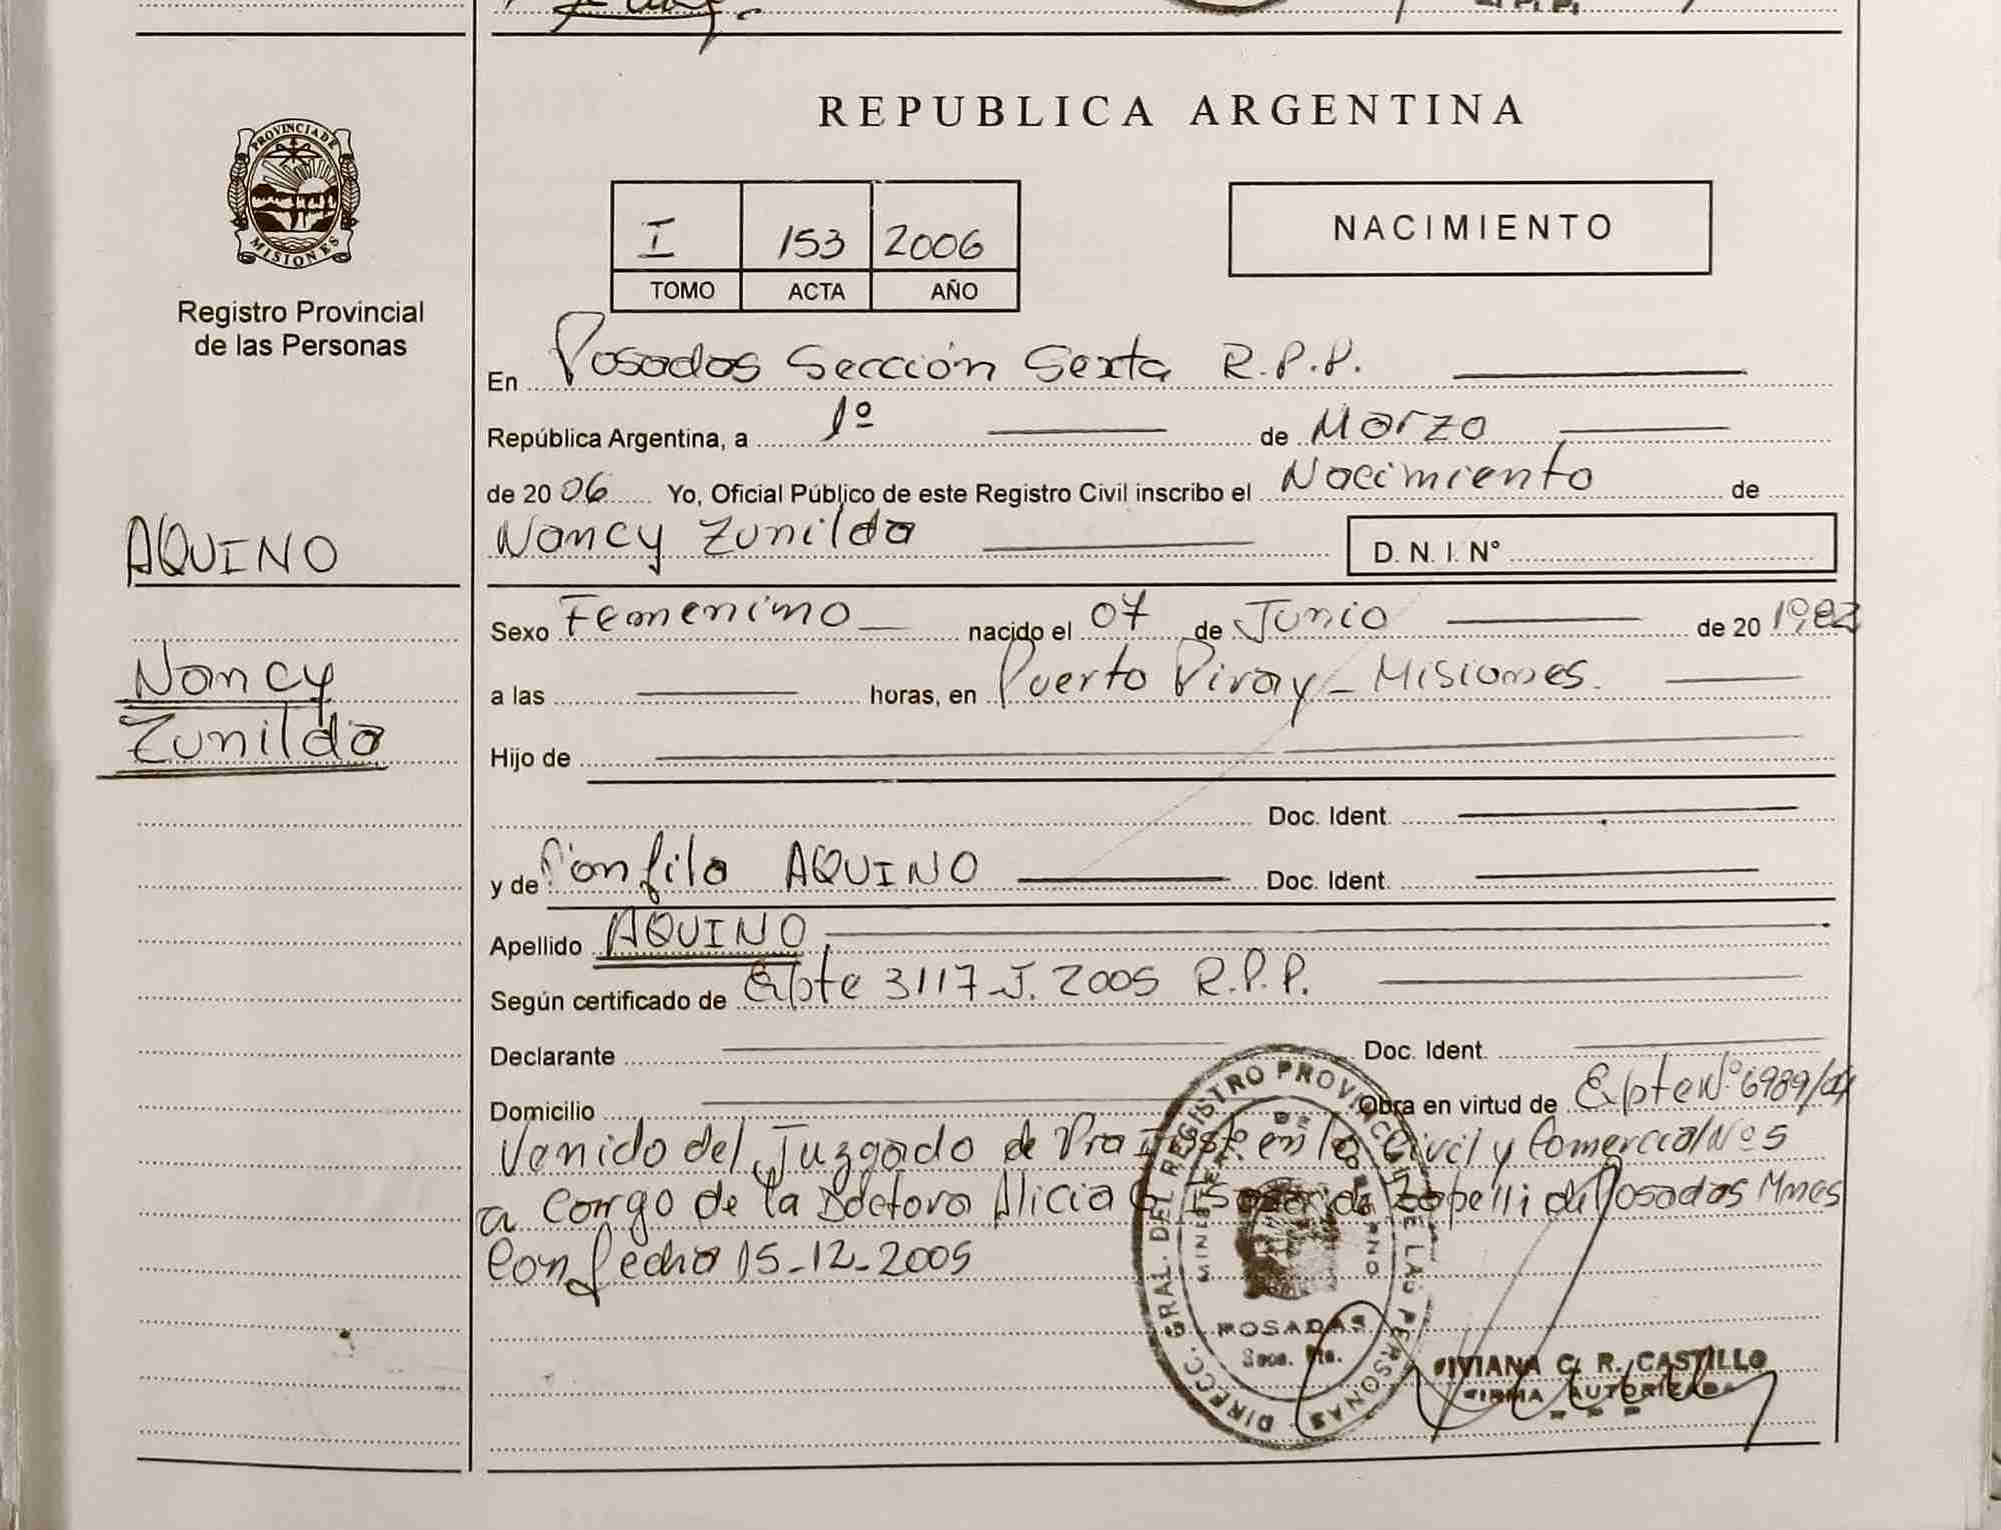 REPUBLICA ARGENTINA
PROVINCIA DE
MISIONES
Registro Provincial
de las Personas
I 153 2006
TOMO ACTA AÑO
NACIMIENTO
En Posadas Sección Sexta R.P.P.
República Argentina, a 1º de Marzo
de 20 06 Yo, Oficial Público de este Registro Civil inscribo el Nacimiento de
Nancy Zunilda D. N. I. N°
AQUINO
Nancy
Zunilda
Sexo Femenimo nacido el 07 de Junio de 20 1982
a las horas, en Puerto Piray - Misiones.
Hijo de
Doc. Ident.
y de Panfilo AQUINO Doc. Ident.
Apellido AQUINO
Según certificado de Expte 3117-J. 2005 R.P.P.
Declarante Doc. Ident.
Domicilio Obra en virtud de Expte Nº 6989/04
Venido del Juzgado de en lo Civil y Comercial Nº 5
a cargo de la Doctora Alicia de Posadas Mnes
Con fecha 15-12-2005
DIRECC. GRAL. DEL REGISTRO PROVINCIAL DE LAS PERSONAS
MINISTERIO DE GOBIERNO
POSADAS
VIVIANA C. R. CASTILLO
FIRMA AUTORIZADA